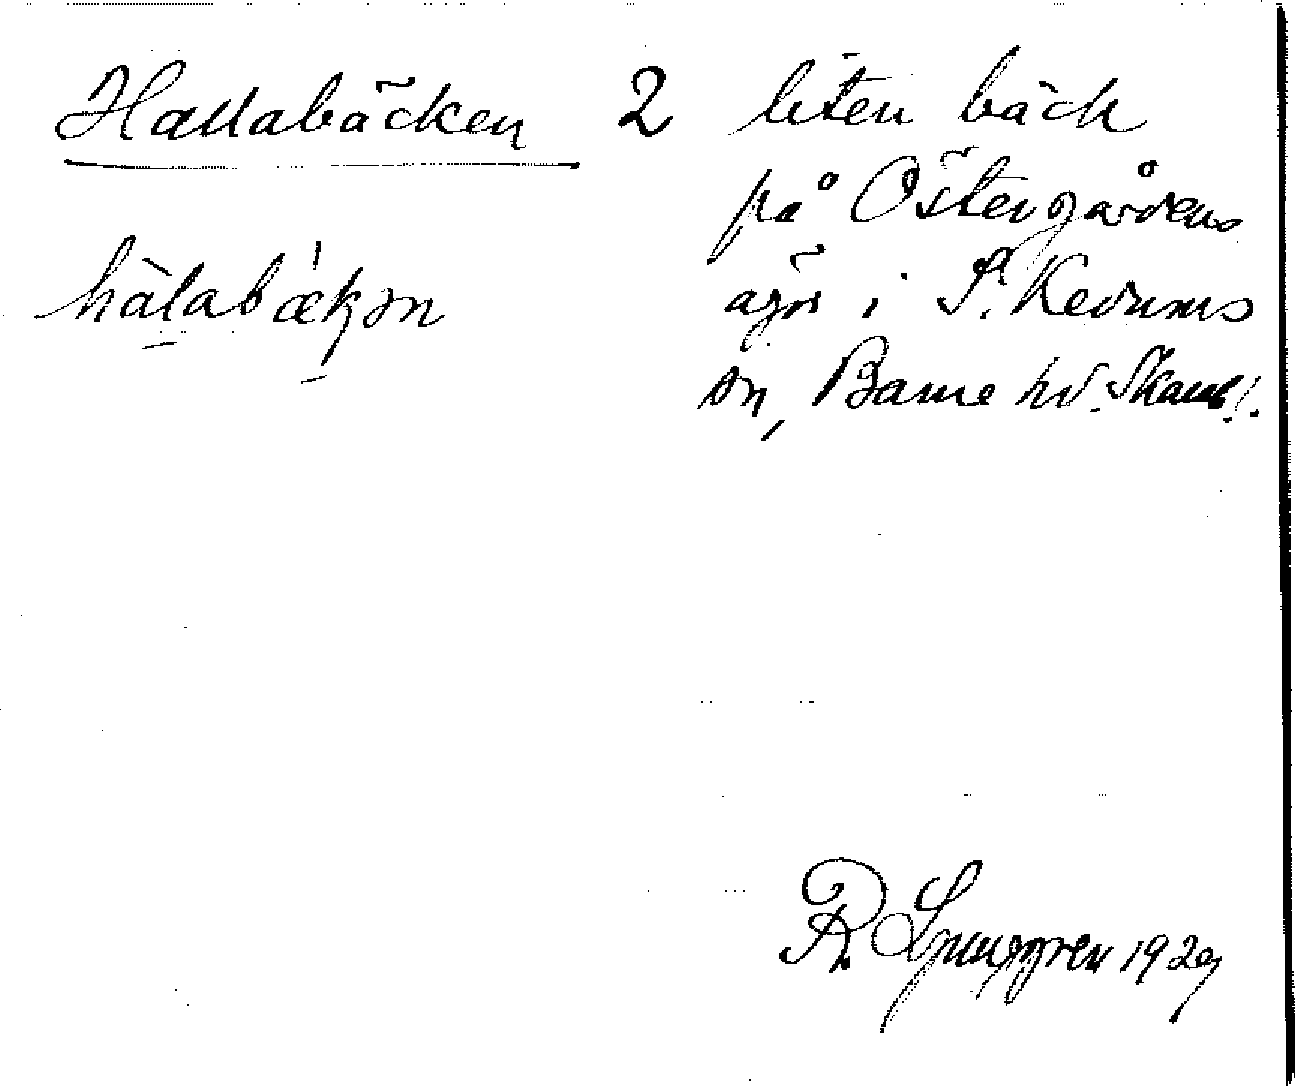 Hallabäcken 2 liten bäck
på Östergårdens
hàlabǽkən
ägor i S. Kedums
sn, Barne hd. Skarab. l.
R Ljunggren 1929